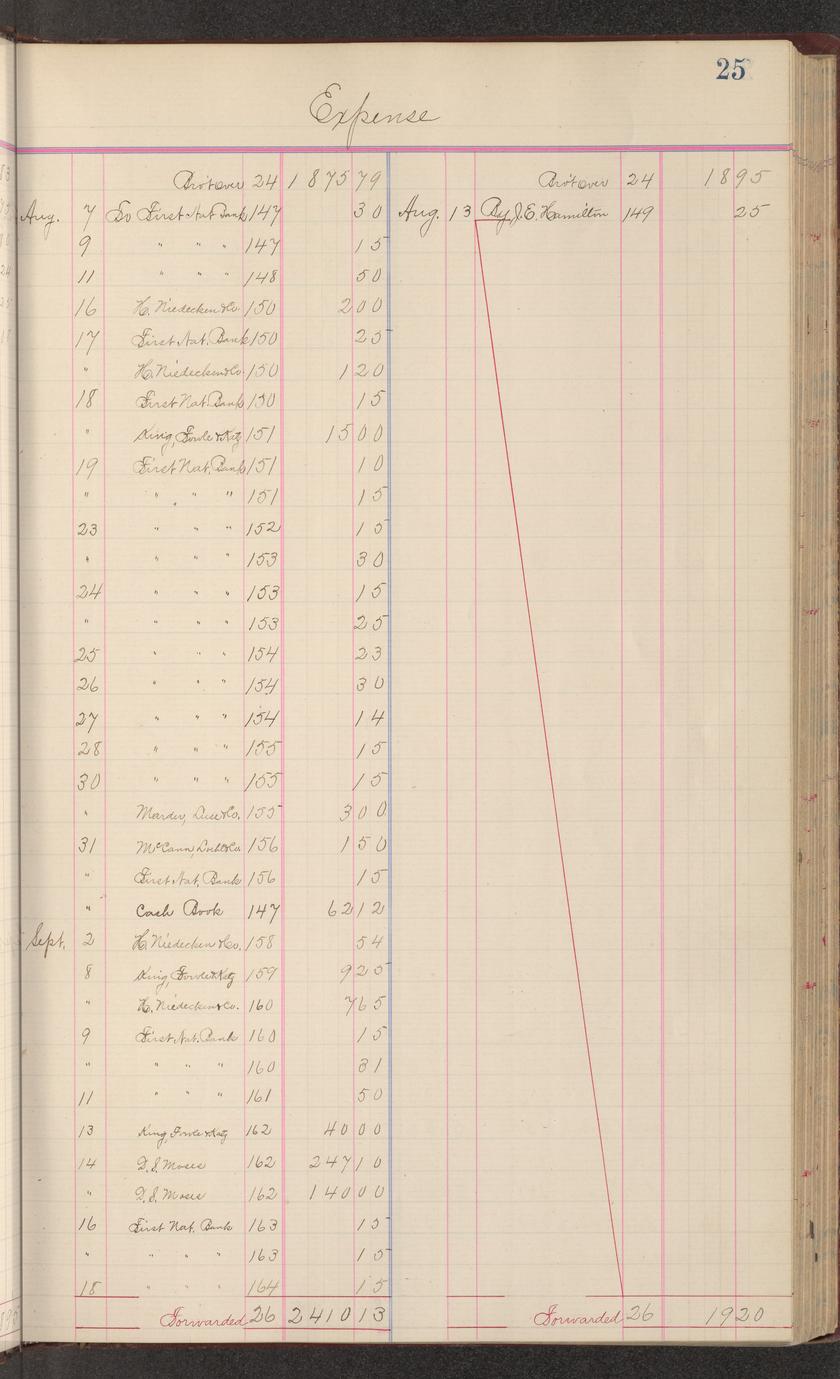 25
Expense
Bro't over 24 1875 79 Bro't over 24 18 95
Aug. 7 To First Nat Bank 147 30 Aug. 13 By J. E. Hamilton 149 25
9 " " " 147 15
11 " " " 148 50
16 H. Niedecken & Co. 150 2 00
17 First Nat. Bank 150 25
" H. Niedecken & Co. 150 1 20
18 First Nat. Bank 150 15
" King, Fowle & Katz 151 15 00
19 First Nat. Bank 151 10
" " " " 151 15
23 " " " 152 15
" " " " 153 30
24 " " " 153 15
" " " " 153 25
25 " " " 154 23
26 " " " 154 30
27 " " " 154 14
28 " " " 155 15
30 " " " 155 15
" Marder, Luse & Co. 155 3 00
31 McCann, & Co 156 1 50
" First Nat. Bank 156 15
" Cash Book 147 62 12
Sept. 2 H. Niedecken & Co. 158 54
8 King, Fowle & Katz 159 9 25
" H. Niedecken & Co. 160 7 65
9 First Nat. Bank 160 15
" " " " 160 31
11 " " " 161 50
13 King, Fowle & Katz 162 40 00
14 D. S. Moses 162 247 10
" D. S. Moses 162 140 00
16 First Nat. Bank 163 15
" " " " 163 15
18 " " " 164 15
Forwarded 26 2410 13 Forwarded 26 19 20